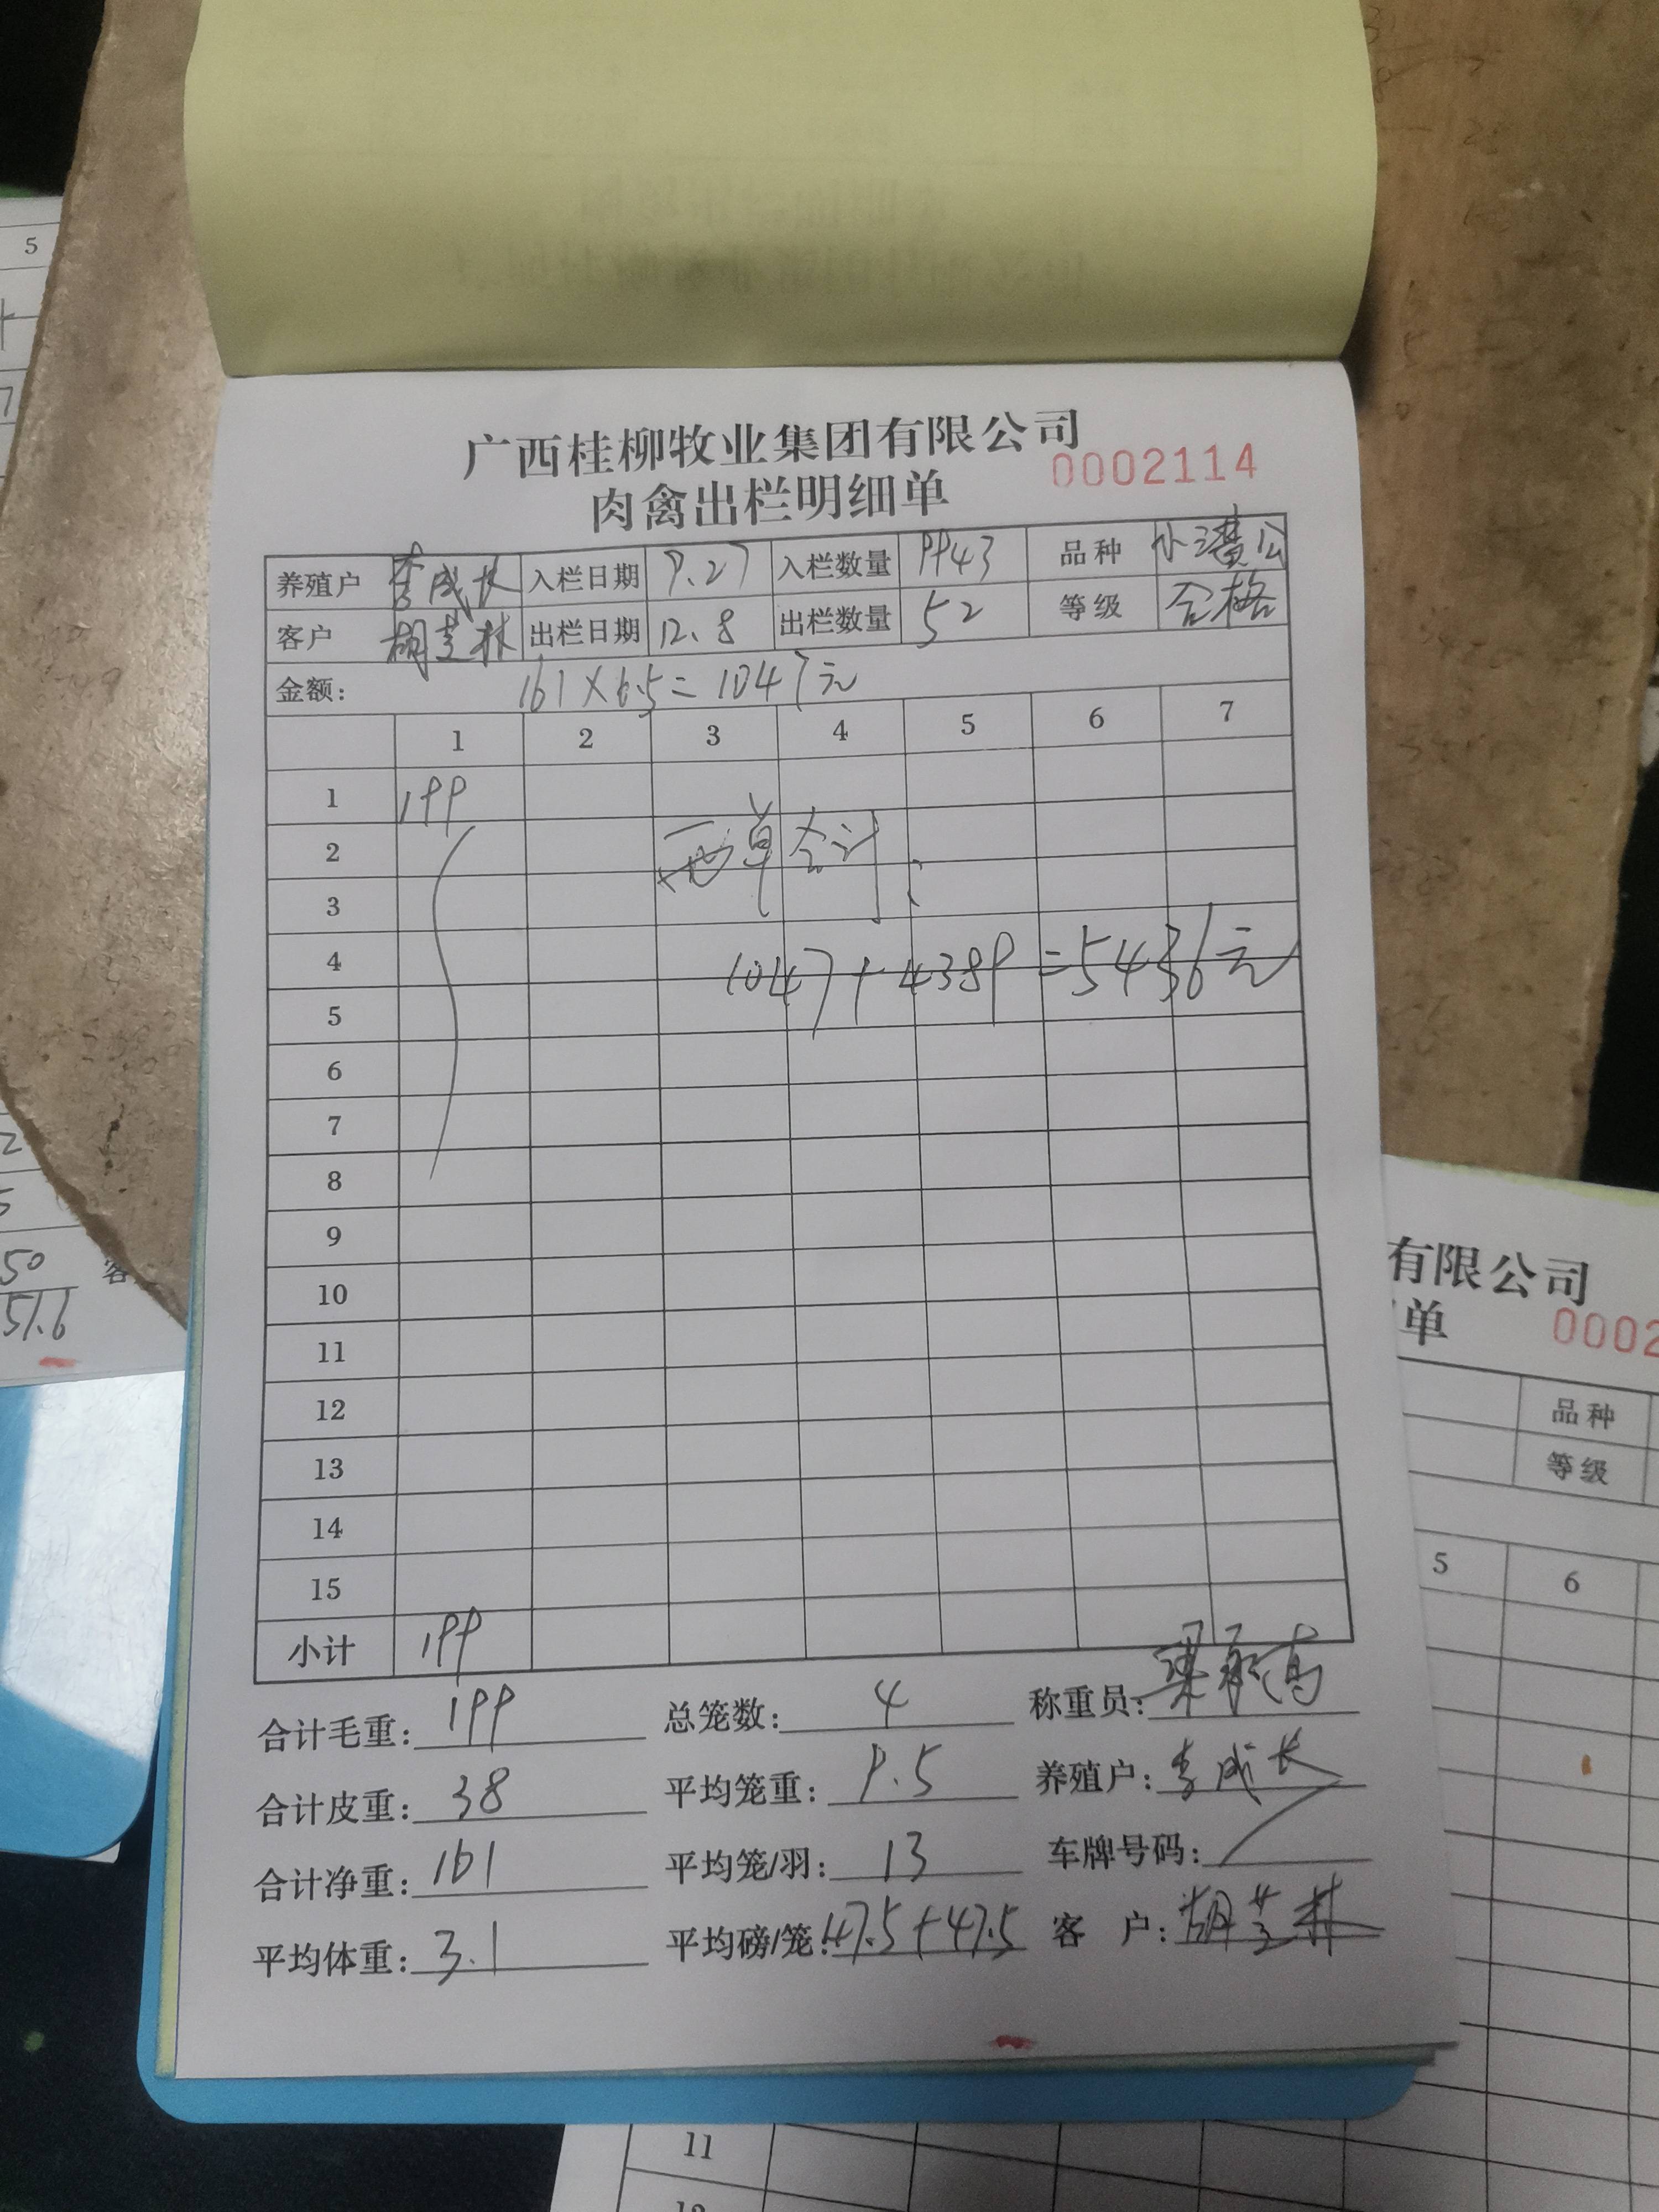 广西桂柳牧业集团有限公司
肉禽出栏明细单 0002114
养殖户 李成长 入栏日期 9.27 入栏数量 9943 品种 公
客户 胡芝林 出栏日期 12.8 出栏数量 52 等级 合格
金额: 161×6.5=1047元
1 2 3 4 5 6 7
1 199
2 两单合计:
3
4 1047+4389=5436元
5
6
7
8
9
10
11
12
13
14
15
小计 199
合计毛重: 199 总笼数: 4 称重员: 梁
合计皮重: 38 平均笼重: 9.5 养殖户: 李成长
合计净重: 161 平均笼/羽: 13 车牌号码:
平均体重: 3.1 平均磅/笼: 47.5+47.5 客 户: 胡芝林
5
7
2
5
50
51.6
客
有限公司
单 0002
品种
等级
5 6
11